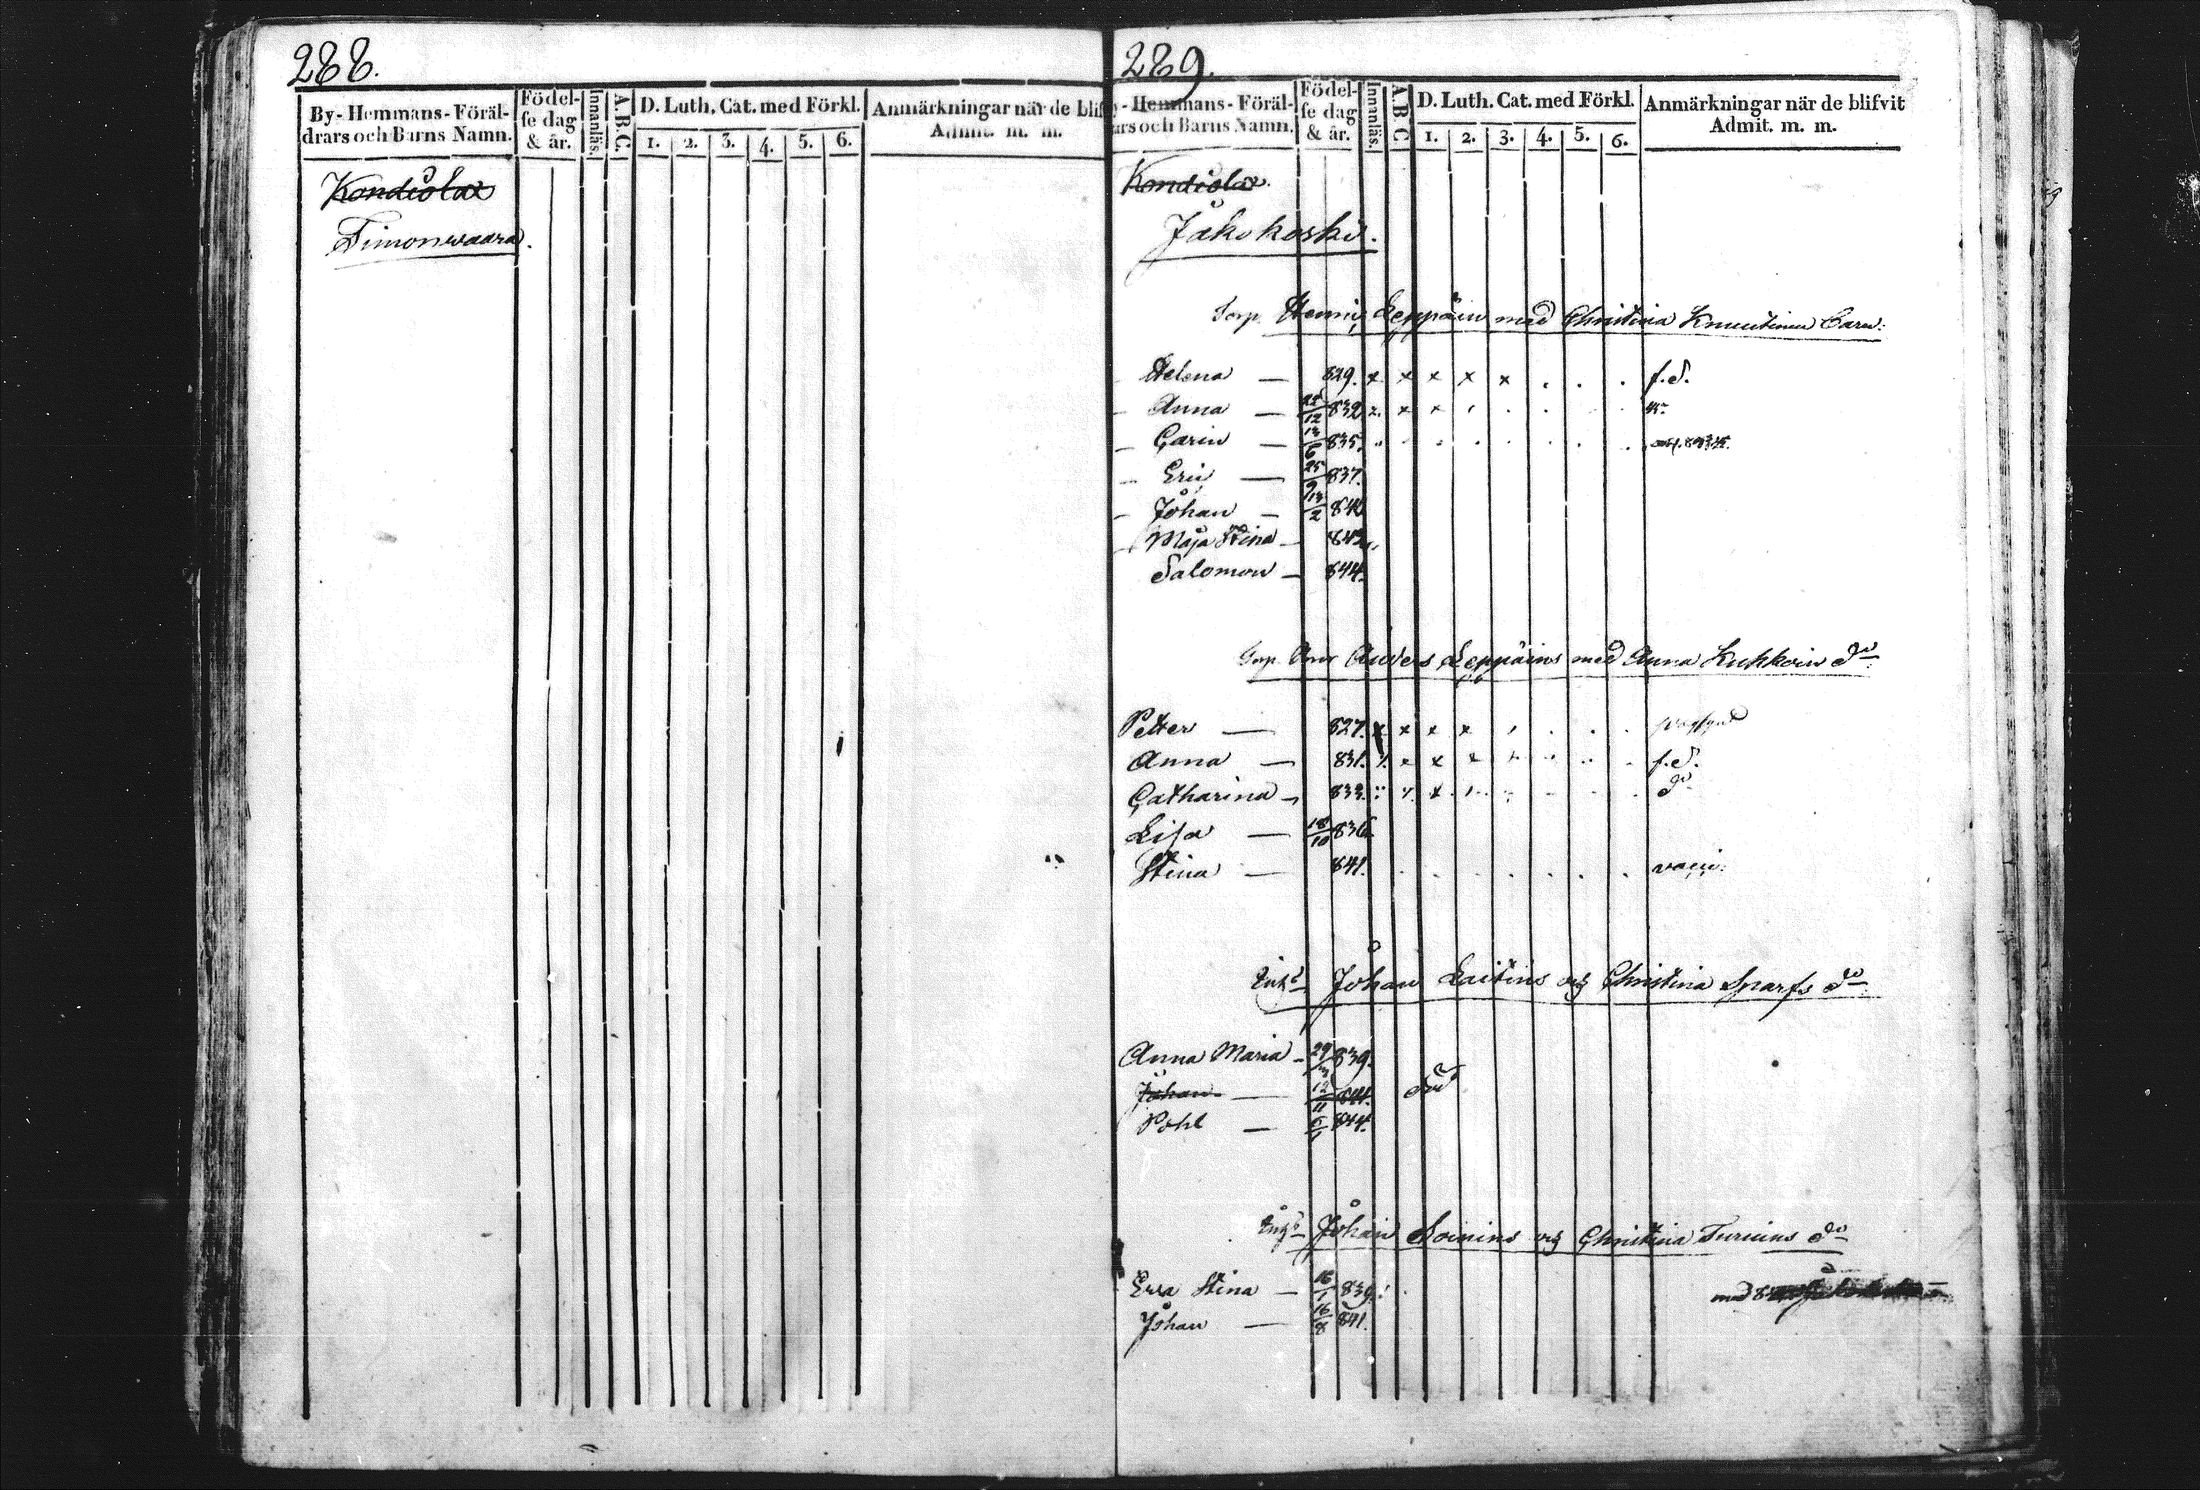 288.
By- Hemmans- Föräl-
drars och Barns Namn.
Födel-
se dag
& år.
Innanläs.
A.B.C.
D. Luth. Cat. med Förkl.
1. 2. 3. 4. 5. 6.
Anmärkningar när de blif
Admit. m. m.
Kondiolax
Timonwaara.
289.
y- Hemmans- Föräl-
ars och Barns Namn.
Födel-
se dag
& år.
Innanläs.
A B C
D. Luth. Cat. med Förkl.
1. 2. 3. 4. 5. 6.
Anmärkningar när de blifvit
Admit. m. m.
Kondiolax.
Jakokoski.
Torp. Henric Leppäin med Christina Knuutinen Barn:
Helena — 829. x x x x x . . . f.d.
Anna — 22/12 832 x. x x
Carin — 13/6 835.
Eric — 25/9 837.
Johan — 13/2 840
Maja Stina — 843
Salomon — 844.
Torp. Anders Leppäins med Anna Kuhkoin do
Petter — 827. x x x x
Anna — 831. x x x f.d.
Catharina — 833. x x do
Lisa — 18/10 836
Stina — 841. . . . . . . . vacci:
Johan Laitins och Christina Sparfs do
Anna Maria — 29/3 839.
Johan — 12/11 död
Pohl — 5/1 844.
Johan Soinins och Christina Turuins do
Ewa Stina — 16/1 839.
Johan — 16/8 841.